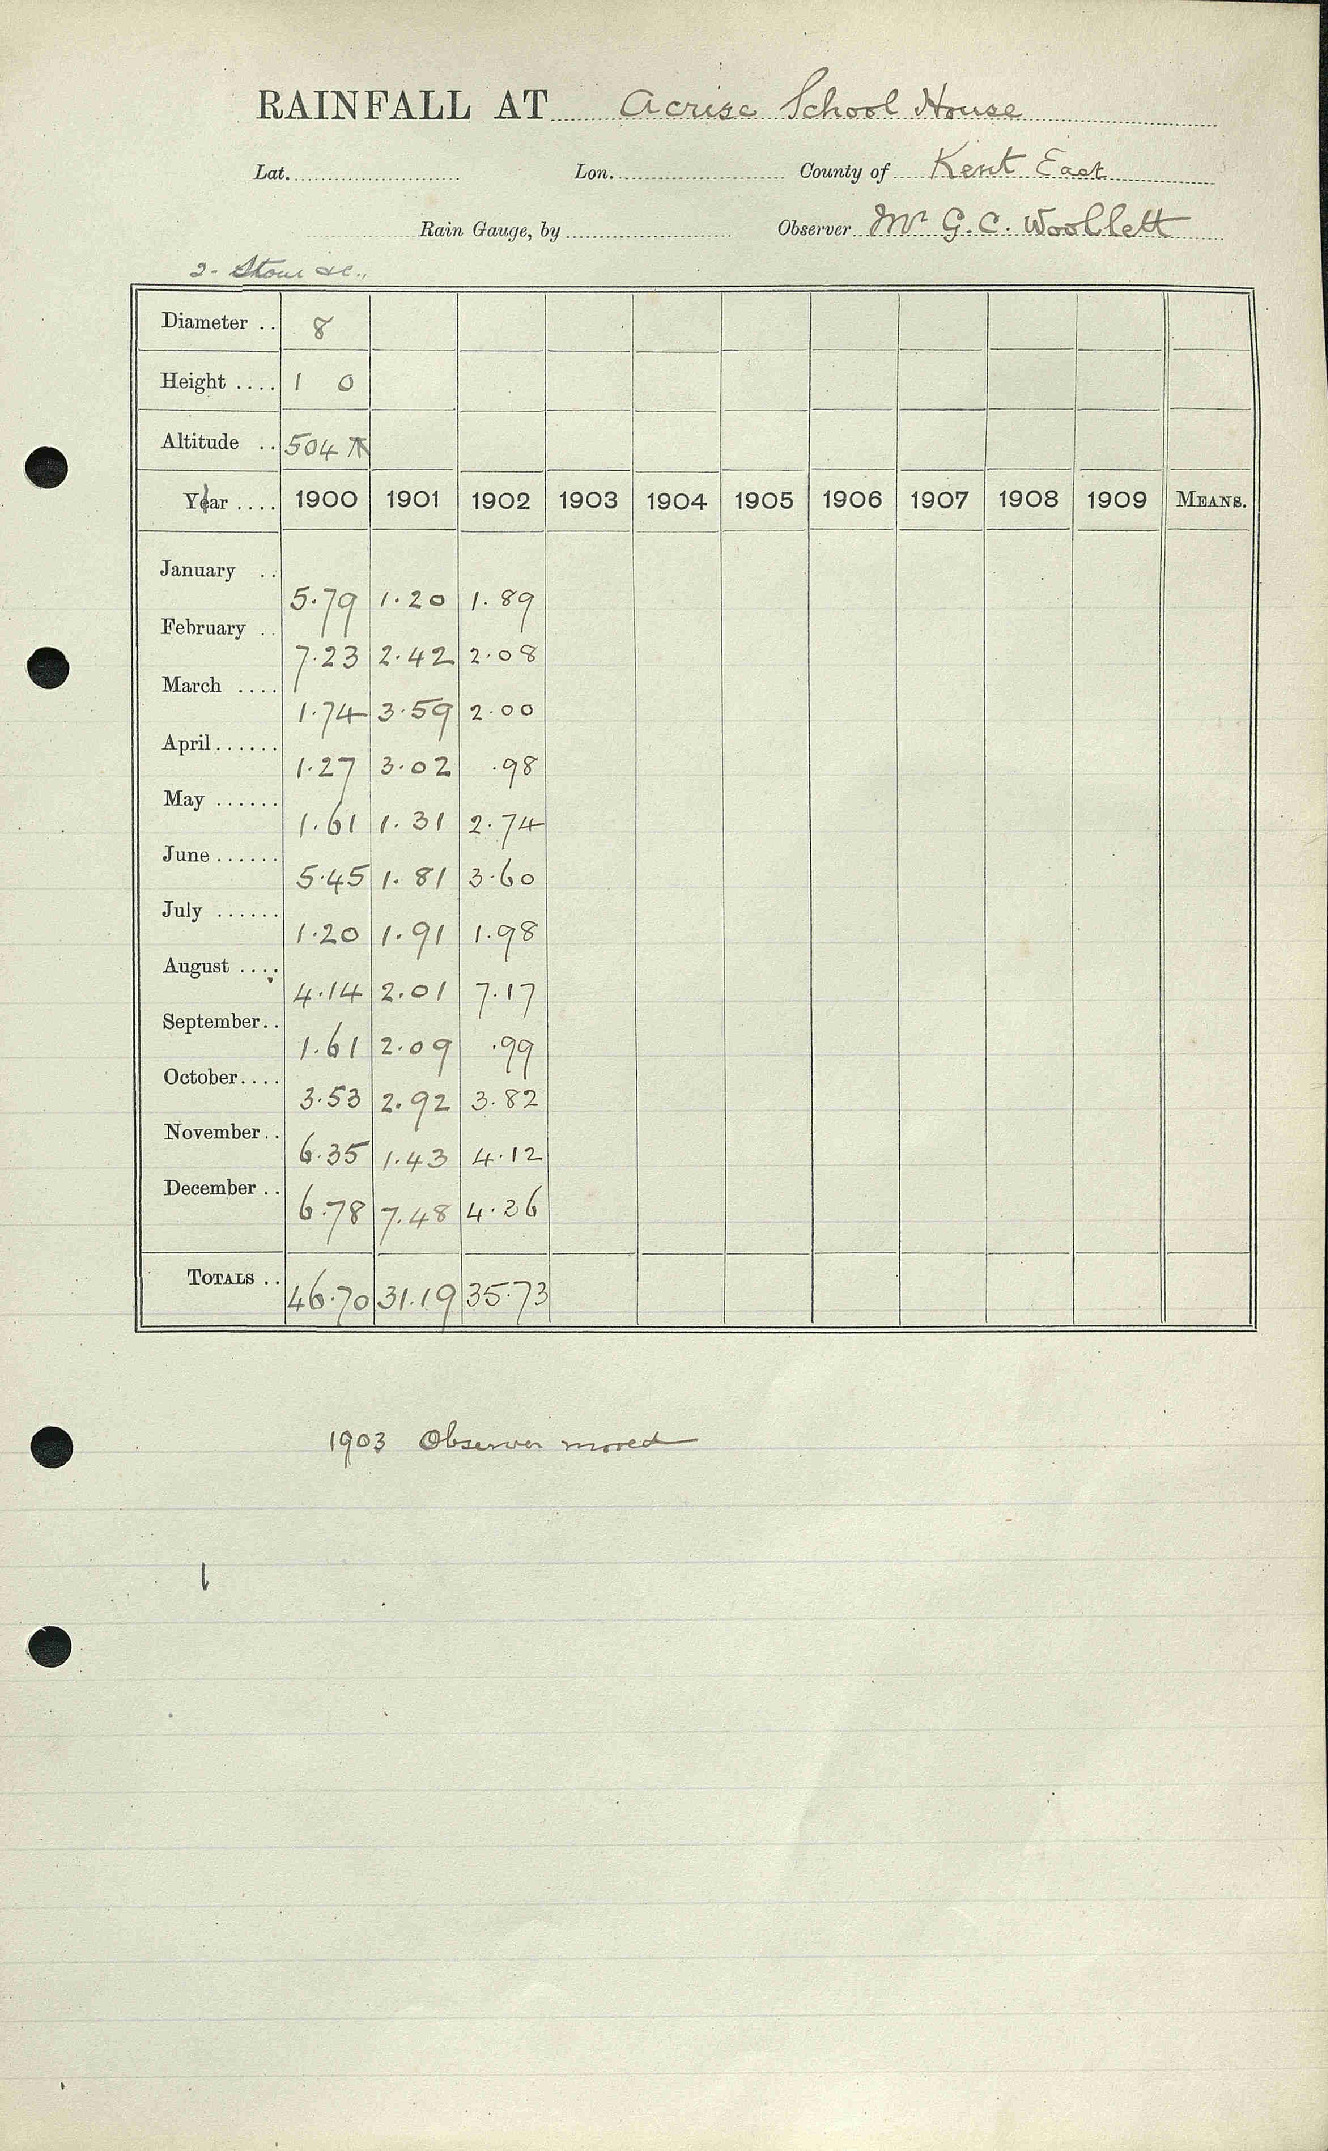 RAINFALL AT Acrise School House
Lat. Lon. County of Kent East
Rain Gauge, by Observer Mr G. C. Woollett
2 - Stour &c.,
Diameter .. 8
Height .... 1 0
Altitude .. 504
Year .... 1900 1901 1902 1903 1904 1905 1906 1907 1908 1909 MEANS.
January .. 5.79 1.20 1.89
February .. 7.23 2.42 2.08
March .... 1.74 3.59 2.00
April...... 1.27 3.02 .98
May ...... 1.61 1.31 2.74
June...... 5.45 1.81 3.60
July ...... 1.20 1.91 1.98
August .... 4.14 2.01 7.17
September.. 1.61 2.09 .99
October.... 3.53 2.92 3.82
November.. 6.35 1.43 4.12
December .. 6.78 7.48 4.36
TOTALS .. 46.70 31.19 35.73
1903 Observer moved